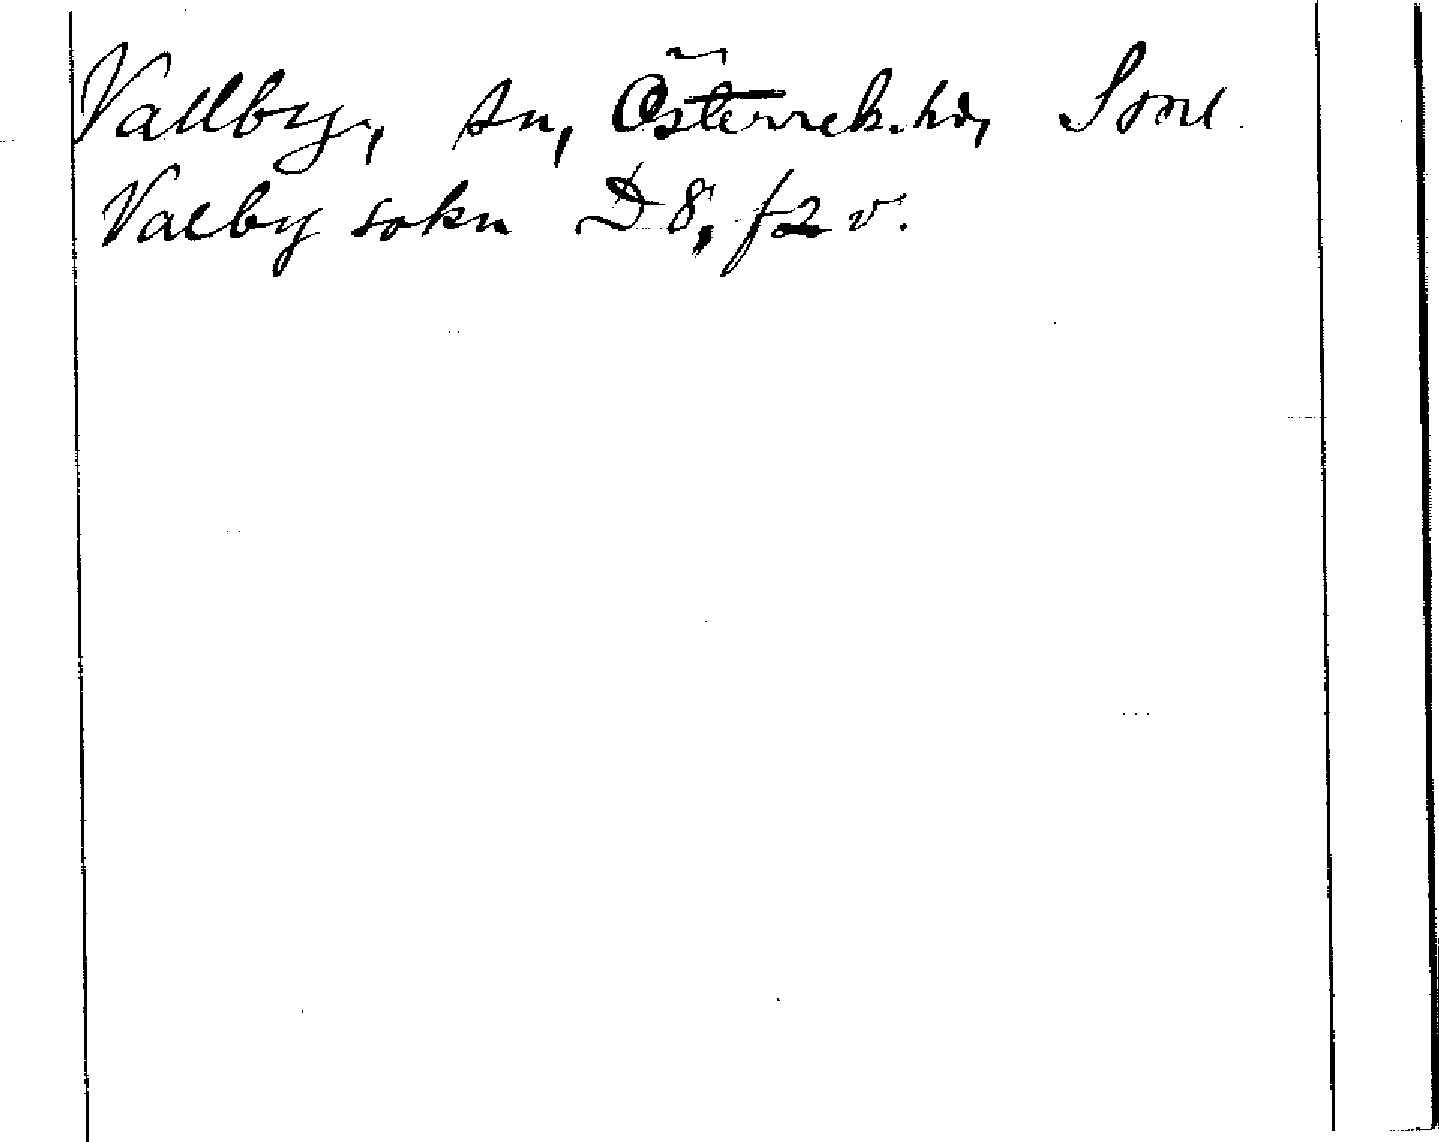 Vallby, sn, Österrek. hd, Söml
Valby sokn D 8, f 2 v.